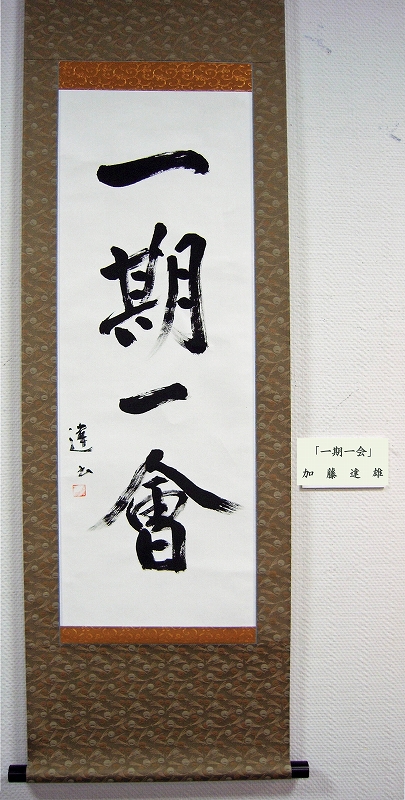 一期一會
達書
「一期一会」
加藤達雄